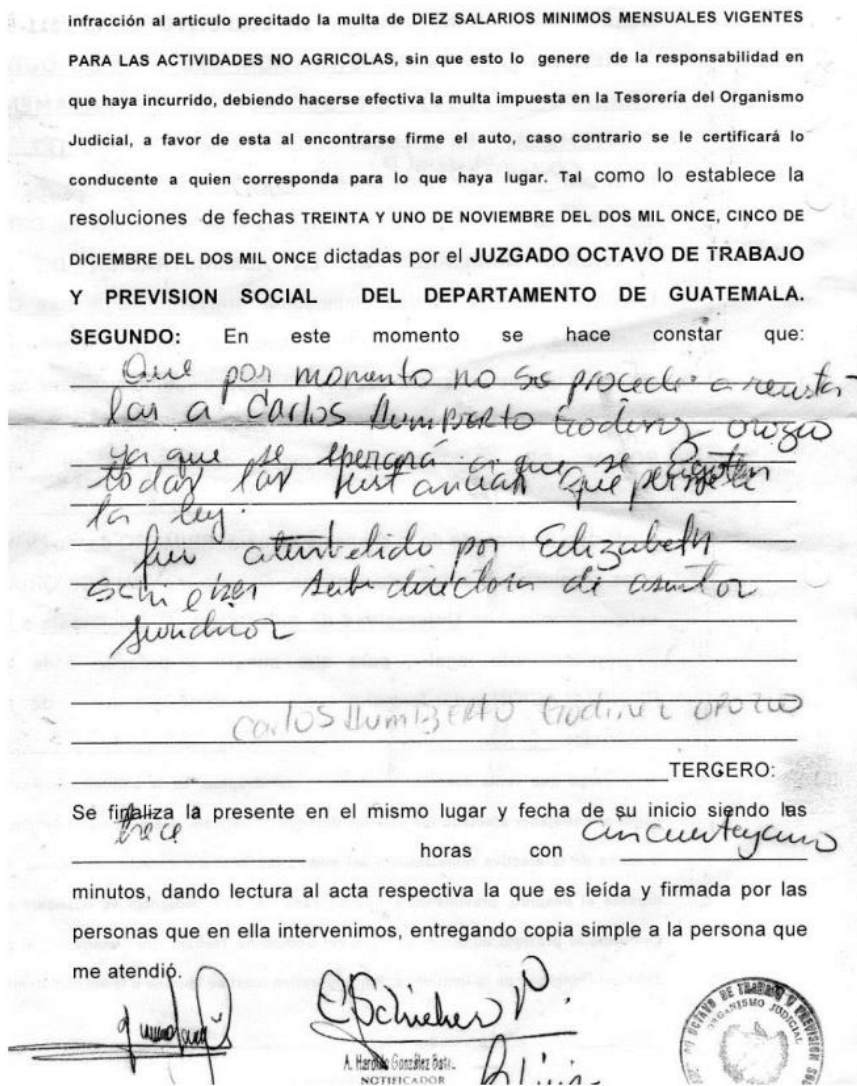 infracción al articulo precitado la multa de DIEZ SALARIOS MINIMOS MENSUALES VIGENTES
PARA LAS ACTIVIDADES NO AGRICOLAS, sin que esto lo genere de la responsabilidad en
que haya incurrido, debiendo hacerse efectiva la multa impuesta en la Tesorería del Organismo
Judicial, a favor de esta al encontrarse firme el auto, caso contrario se le certificará lo
conducente a quien corresponda para lo que haya lugar. Tal como lo establece la
resoluciones de fechas TREINTA Y UNO DE NOVIEMBRE DEL DOS MIL ONCE, CINCO DE
DICIEMBRE DEL DOS MIL ONCE dictadas por el JUZGADO OCTAVO DE TRABAJO
Y PREVISION SOCIAL DEL DEPARTAMENTO DE GUATEMALA.
SEGUNDO: En este momento se hace constar que:
Que por momento no se procede a reinsta-
lar a Carlos Humberto Godinez Orozco
ya que se esperará a que se agoten
todas las instancias que permite
la ley.
fui atendido por Elizabeth
Schieber Sub directora de asuntos
Carlos Humberto Godinez Orozco
TERCERO:
Se finaliza la presente en el mismo lugar y fecha de su inicio siendo las
trece horas con cincuenta y uno
minutos, dando lectura al acta respectiva la que es leída y firmada por las
personas que en ella intervenimos, entregando copia simple a la persona que
me atendió.
A. Haroldo González
NOTIFICADOR
OCTAVO DE TRABAJO Y PREVISION
ORGANISMO JUDICIAL